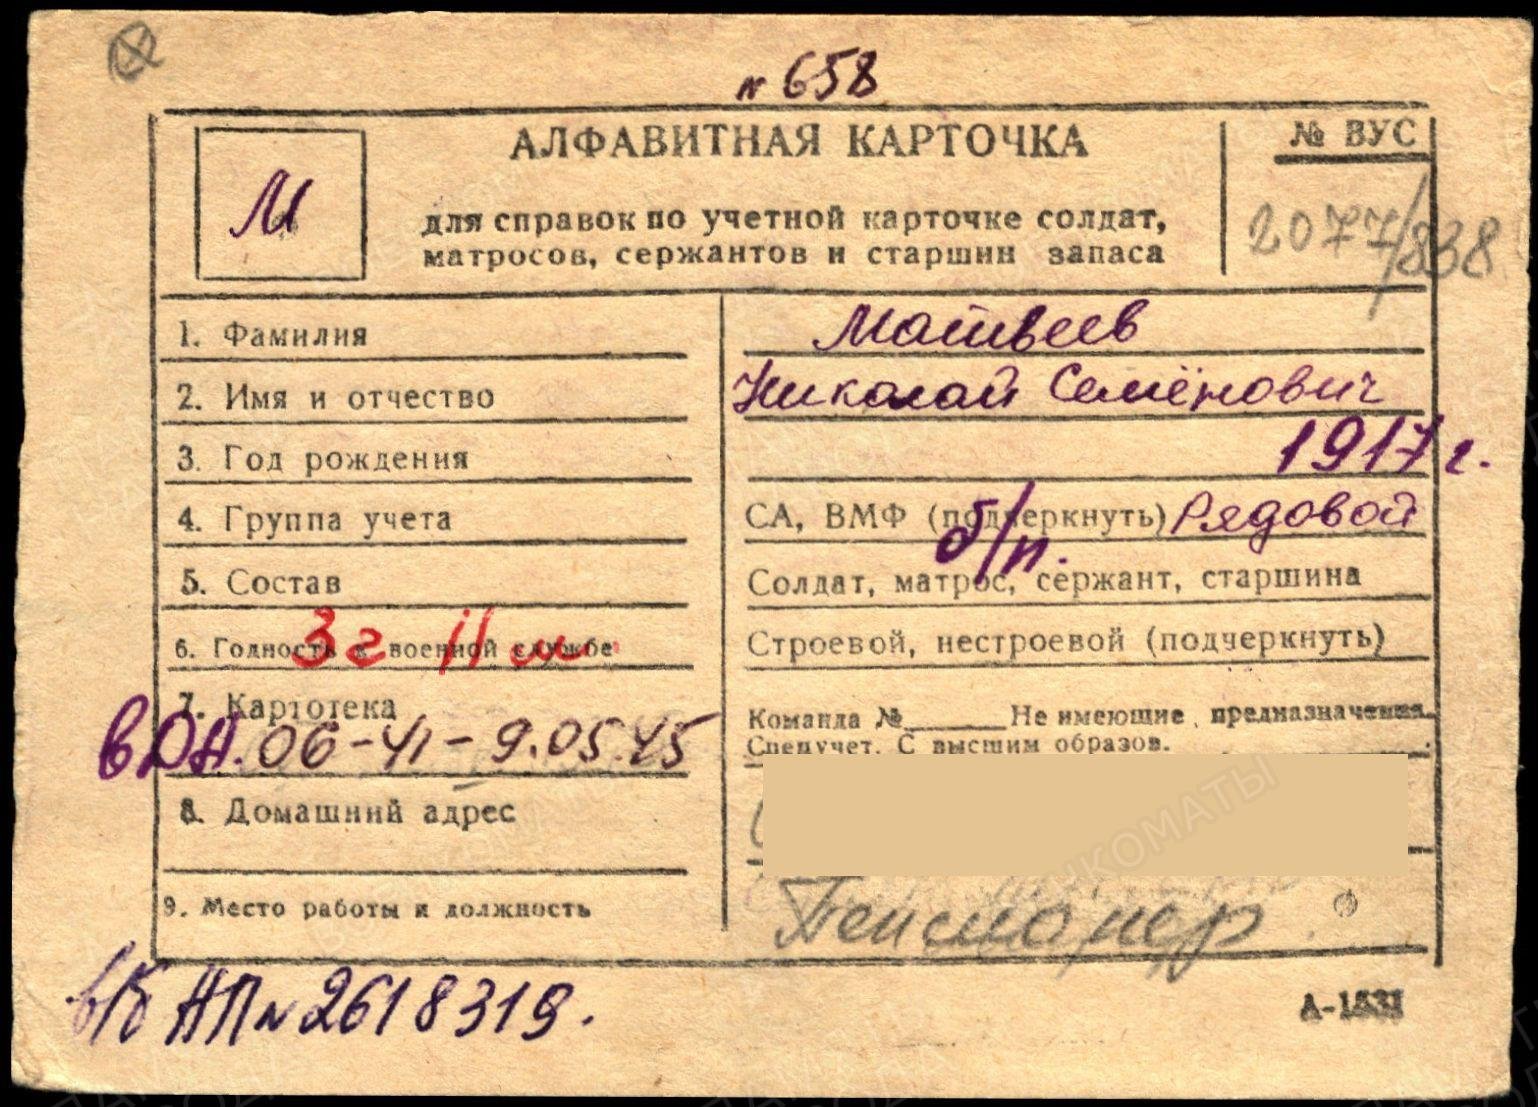 № 658
АЛФАВИТНАЯ КАРТОЧКА
№ ВУС
М
для справок по учетной карточке солдат,
матросов, сержантов и старшин запаса
2077/838
1. Фамилия Матвеев
2. Имя и отчество Николай Семёнович
3. Год рождения 1917 г.
4. Группа учета СА, ВМФ (подчеркнуть) Рядовой
б/п.
5. Состав Солдат, матрос, сержант, старшина
6. Годность к военной службе Строевой, нестроевой (подчеркнуть)
3 г 11 м.
7. Картотека Команда №______ Не имеющие предназначения
Спецучет. С высшим образов.
в ДА. 06-41-9.05.45
8. Домашний адрес
9. Место работы и должность Пенсионер
в/б НП № 2618319.
А-1531
ВОЕНКОМАТЫ